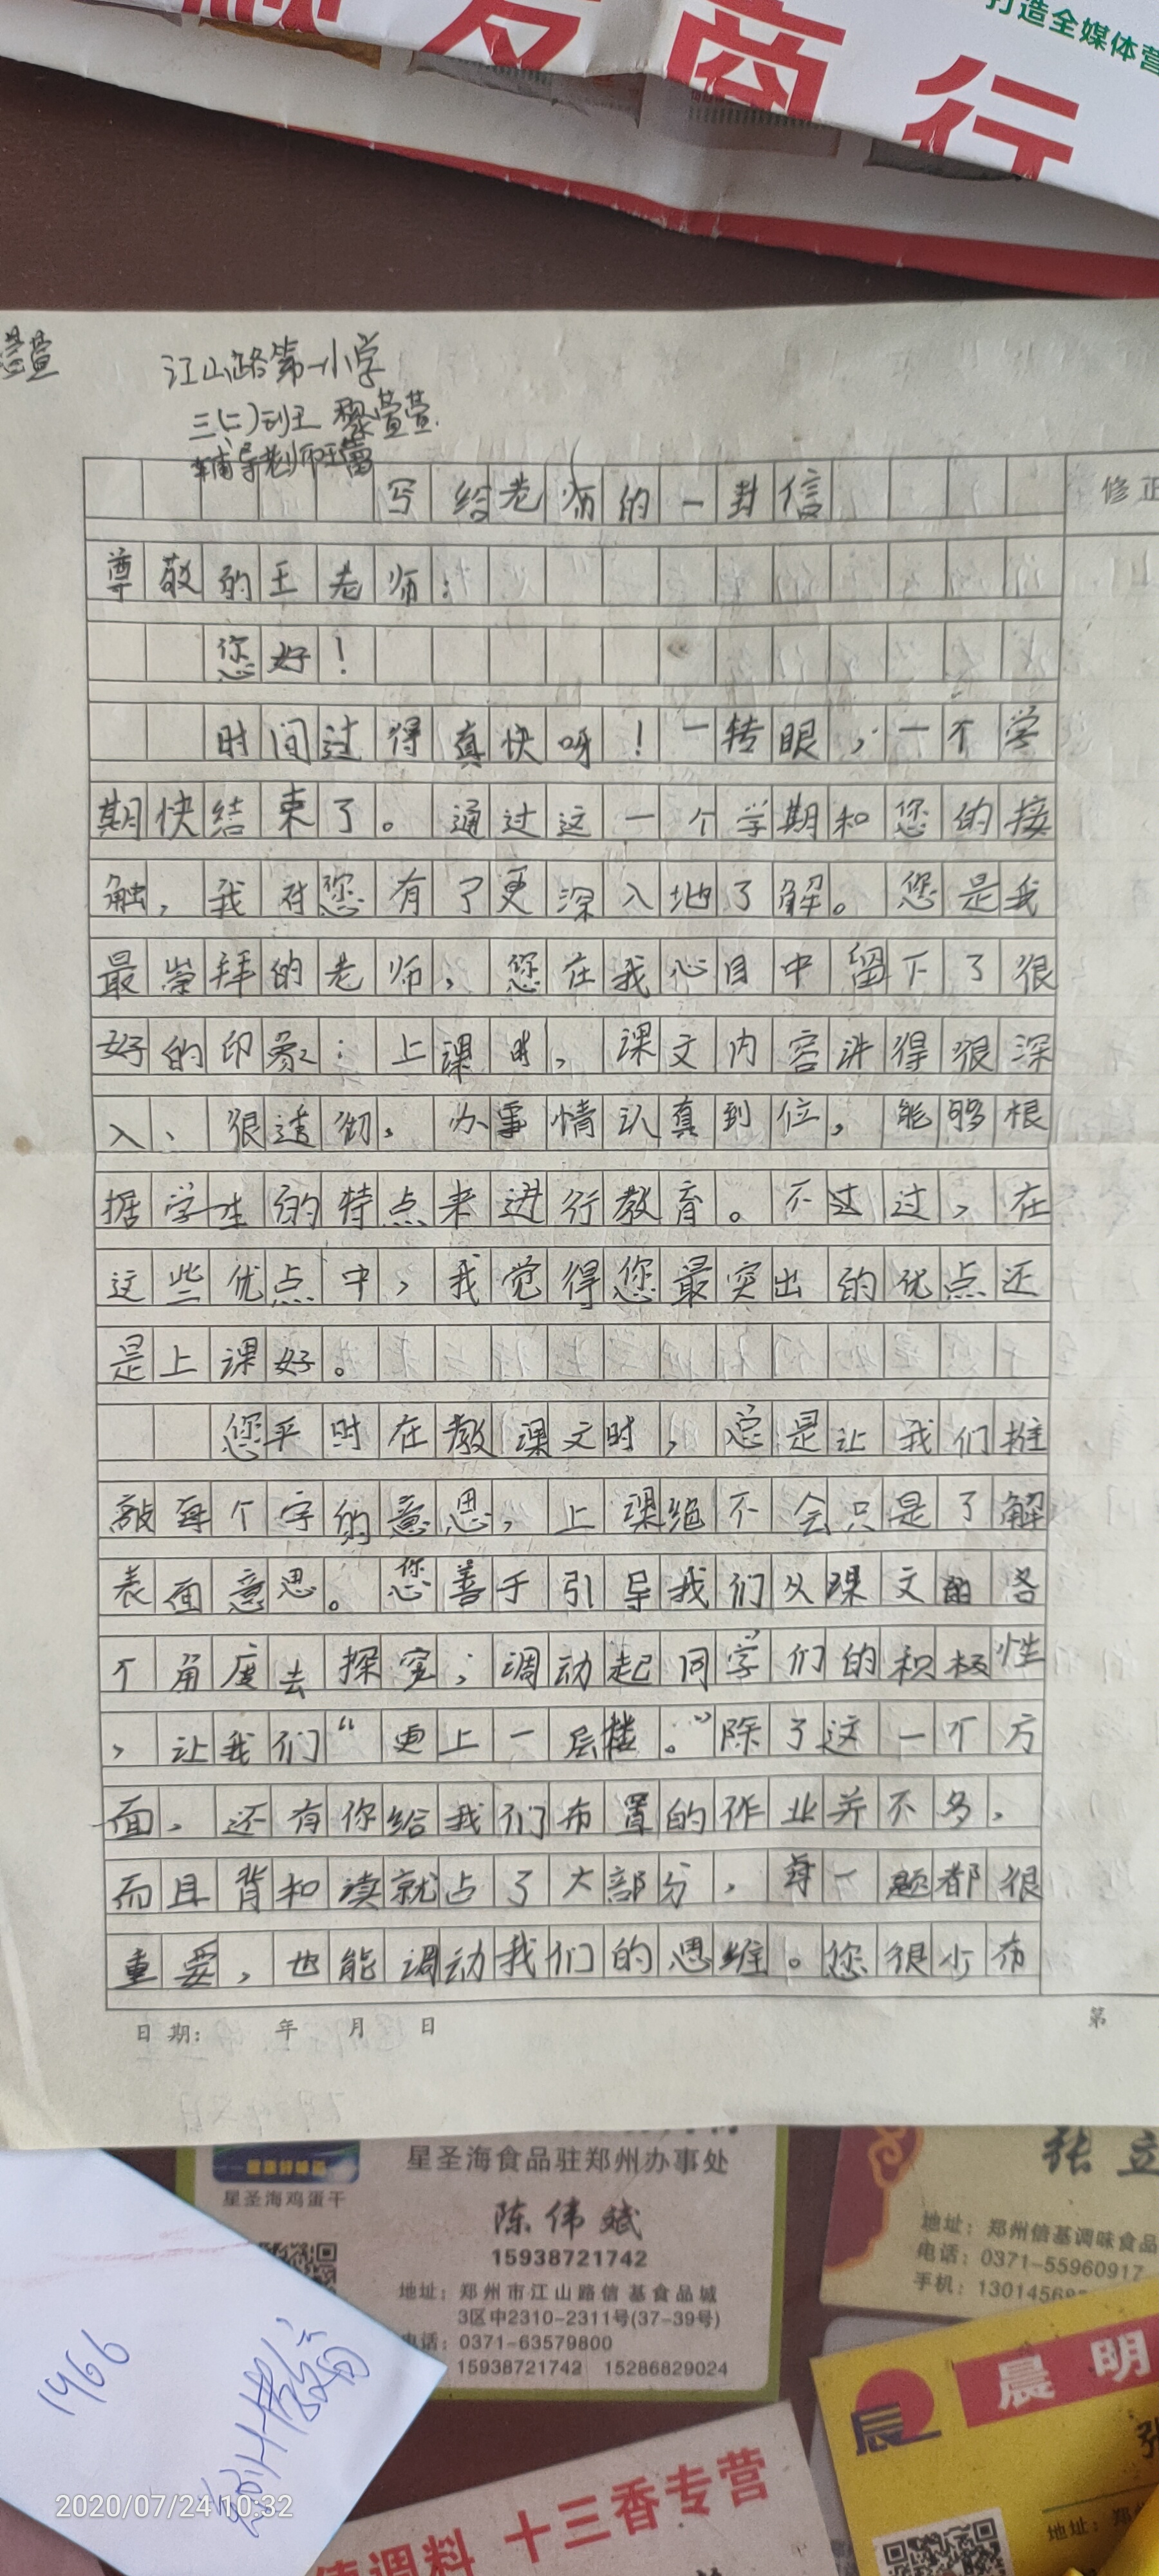 打造全媒体营
发商行
萱萱
江山路第一小学
三(二)班 黎萱萱
辅导老师王蕾
修正
写给老师的一封信
尊敬的王老师:
您好!
时间过得真快呀!一转眼,一个学
期快结束了。通过这一个学期和您的接
触,我对您有了更深入地了解。您是我
最崇拜的老师,您在我心目中留下了很
好的印象:上课时,课文内容讲得很深
入、很透彻,办事情认真到位,能够根
据学生的特点来进行教育。不过过,在
这些优点中,我觉得您最突出的优点还
是上课好。
您平时在教课文时,总是让我们推
敲每个字的意思,上课绝不会只是了解
表面意思。您善于引导我们从课文的各
个角度去探究;调动起同学们的积极性
,让我们“更上一层楼。”除了这一个方
面,还有你给我们布置的作业并不多,
而且背和读就占了大部分,每一题都很
重要,也能调动我们的思维。您很少布
日期: 年 月 日
第
星圣海食品驻郑州办事处
星圣海鸡蛋干
陈伟斌
15938721742
地址:郑州市江山路信基食品城
3区中2310-2311号(37-39号)
电话:0371-63579800
15938721742 15286829024
张立
地址:郑州信基调味食品
电话:0371-55960917
手机:13014568
晨明
张
地址:郑
1466
调料 十三香专营
2020/07/24 10:32